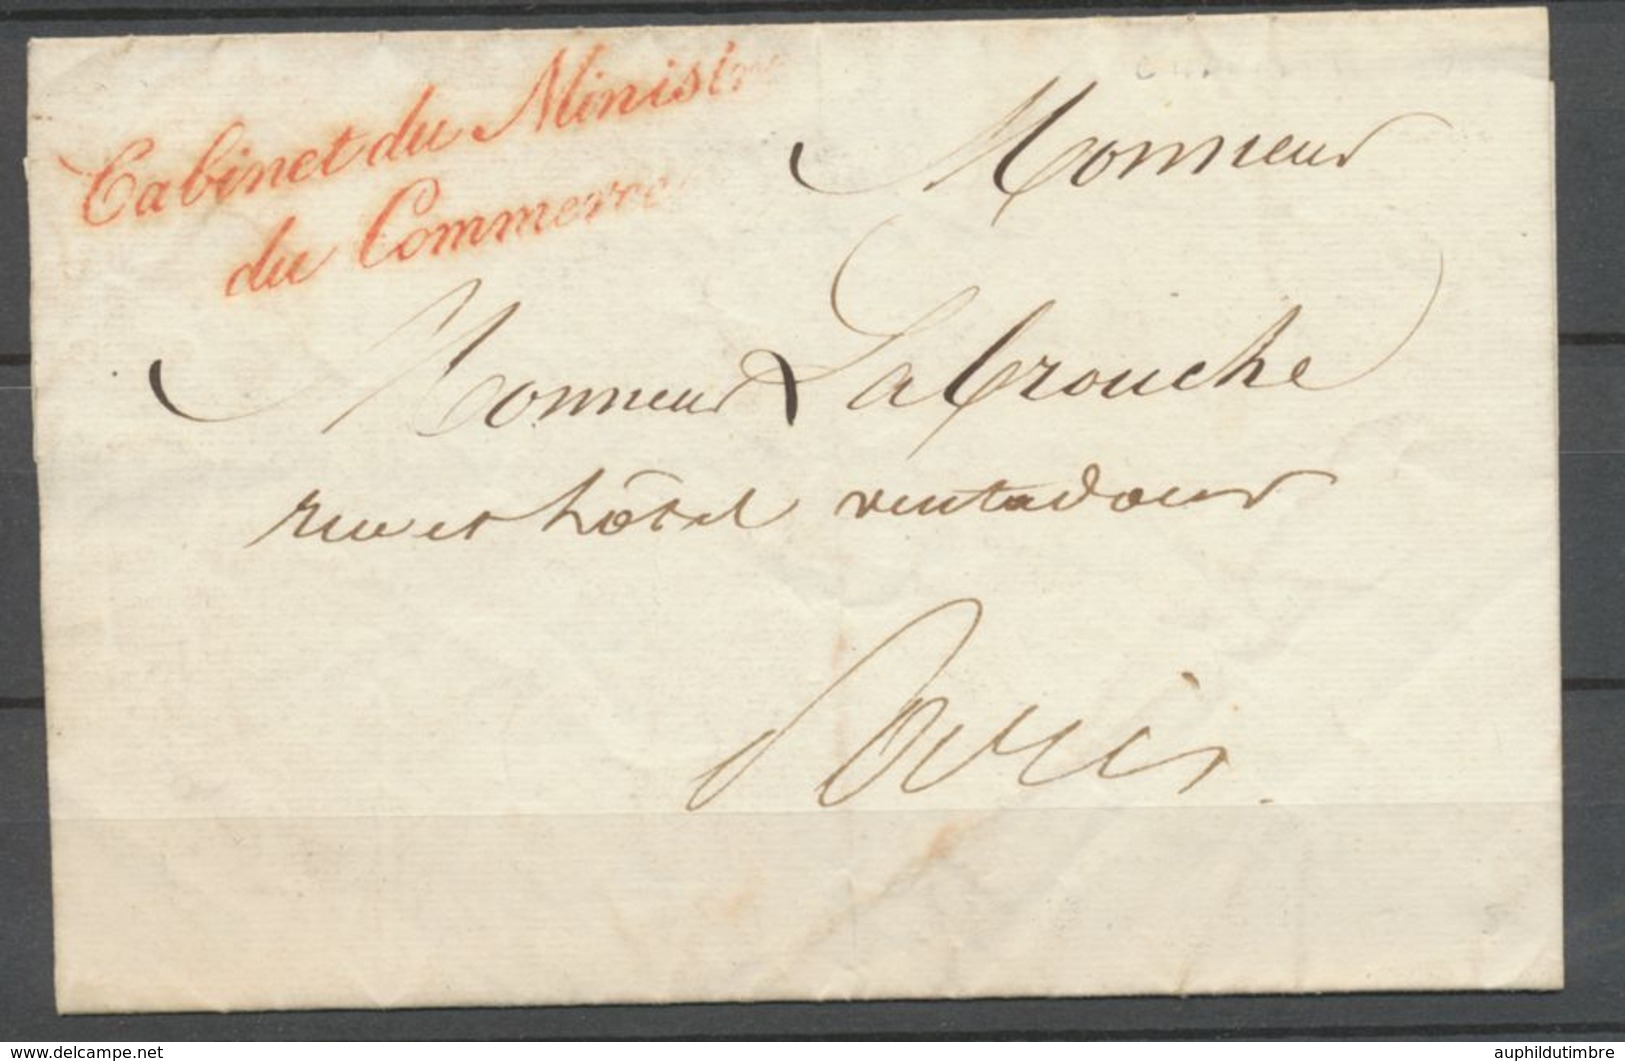 Cabinet du Ministre
du Commerce
Monsieur
Monsieur Labrouche
rue et hôtel ventadour
Paris.
www.delcampe.net
auphildutimbre